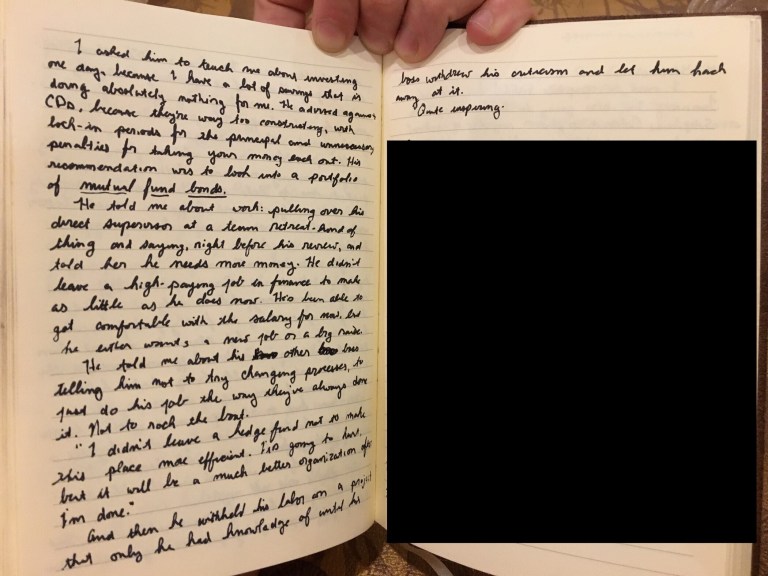 I asked him to teach me about investing
one day, because I have a lot of savings that is
doing absolutely nothing for me. He advised against
CDs, because they're way too constricting, with
lock-in periods for the principal and unnecessary
penalties for taking your money back out. His
recommendation was to look into a portfolio
of mutual fund bonds.
He told me about work: pulling over his
direct supervisor at a team retreat-kind of
thing and saying, right before his review, and
told her he needs more money. He didn't
leave a high-paying job in finance to make
as little as he does now. He's been able to
get comfortable with the salary for now, but
he either wants a new job or a big raise.
He told me about his other boss
telling him not to try changing processes, to
just do his job the way they've always done
it. Not to rock the boat.
"I didn't leave a hedge fund not to make
this place more efficient. It's going to hurt,
but it will be a much better organization after
I'm done."
And then he withheld his labor on a project
that only he had knowledge of until his
boss withdrew his criticism and let him hack
away at it.
Quite inspiring.